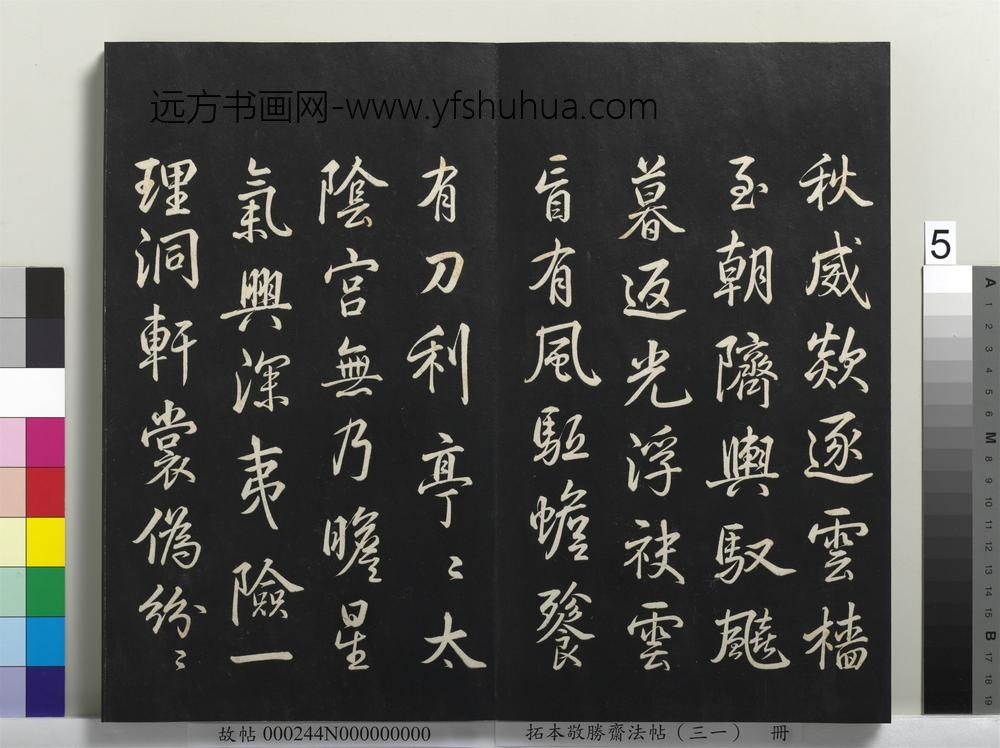 远方书画网-www.yfshuhua.com
秋威欻逐雲檣
至朝隮輿馭飈
暮返光浮袂雲
盲有風駈蟾餮
有刀利亭〻太
陰宮無乃瞻星
氣興深夷險一
理洞軒裳偽紛〻
5
A 1 2 3 4 5 6 M 8 9 10 11 12 13 14 15 B 17 18 19
故帖 000244N000000000
拓本敬勝齋法帖（三一） 冊